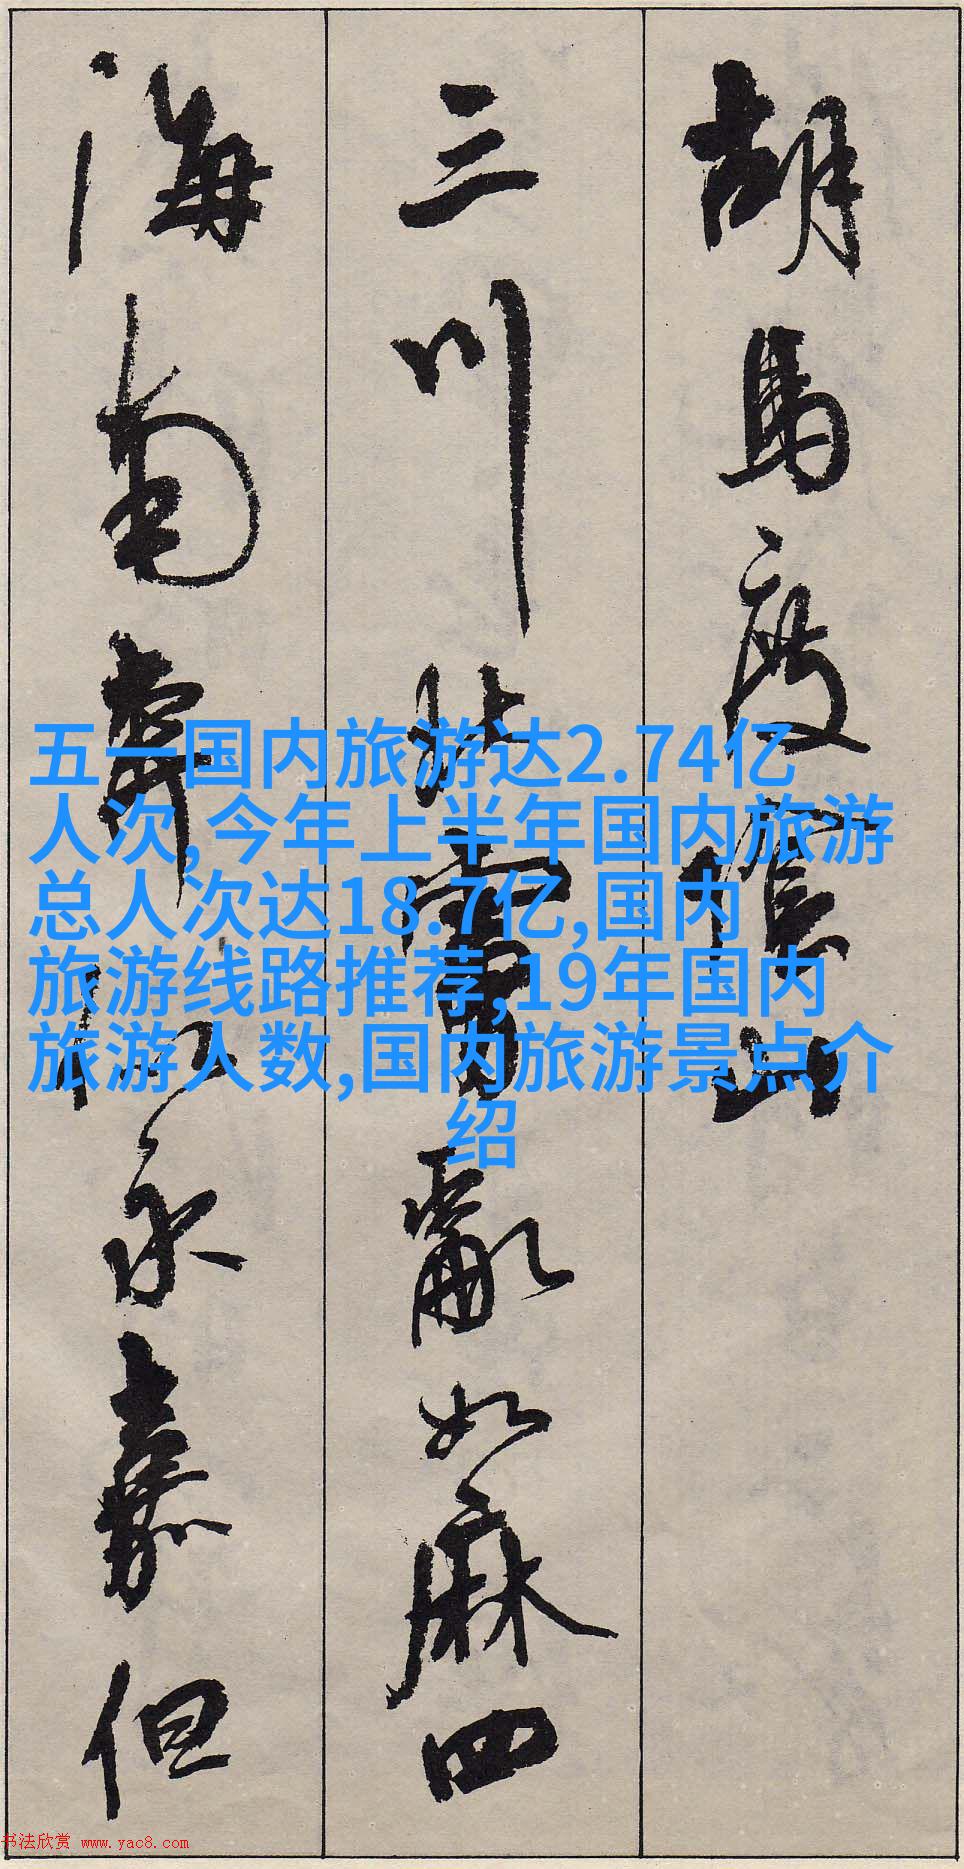 胡馬度陰山
三川北虜亂如麻四
海南奔似永嘉但
五一国内旅游达2.74亿
人次,今年上半年国内旅游
总人次达18.7亿,国内
旅游线路推荐,19年国内
旅游人数,国内旅游景点介
绍
书法欣赏 www.yac8.com